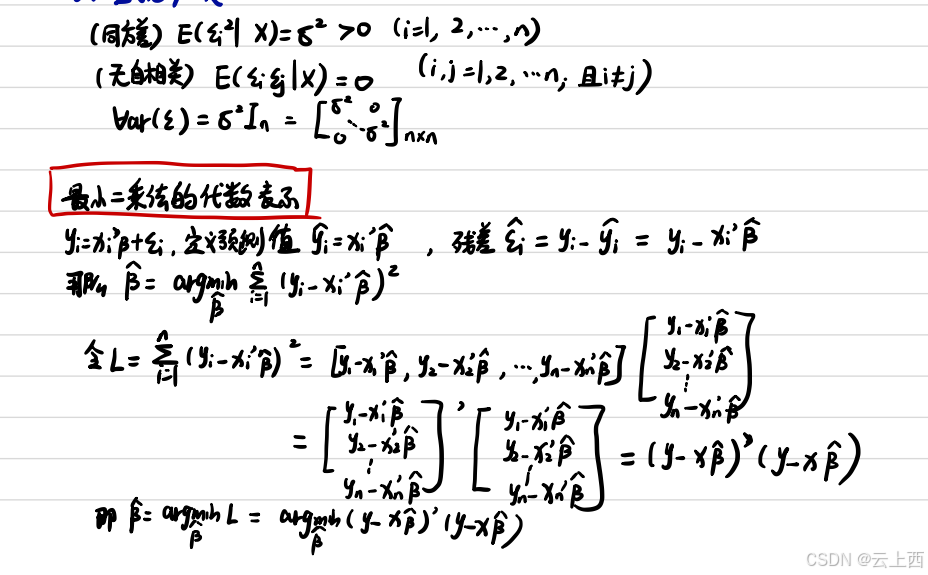 (同方差) E(εᵢ²| X)=σ²>0 (i=1, 2,⋯,n)
(无自相关) E(εᵢεⱼ|X)=0 (i,j=1,2,⋯n, 且i≠j)
Var(ε)=σ²Iₙ = [σ² 0 ⋱ 0 σ²]ₙₓₙ
最小二乘法的代数表示
yᵢ=xᵢ'β+εᵢ, 定义预测值 ŷᵢ=xᵢ'β̂ , 残差 ε̂ᵢ = yᵢ-ŷᵢ = yᵢ-xᵢ'β̂
那么 β̂ = argmin_β̂ Σᵢ₌₁ⁿ (yᵢ-xᵢ'β̂)²
令 L=Σᵢ₌₁ⁿ(yᵢ-xᵢ'β̂)² = [y₁-x₁'β̂, y₂-x₂'β̂, ⋯, yₙ-xₙ'β̂] [y₁-x₁'β̂ y₂-x₂'β̂ ⋮ yₙ-xₙ'β̂]
= [y₁-x₁'β̂ y₂-x₂'β̂ ⋮ yₙ-xₙ'β̂]' [y₁-x₁'β̂ y₂-x₂'β̂ ⋮ yₙ-xₙ'β̂] = (y-xβ̂)'(y-xβ̂)
即 β̂=argmin_β̂ L = argmin_β̂ (y-xβ̂)'(y-xβ̂)
CSDN @云上西